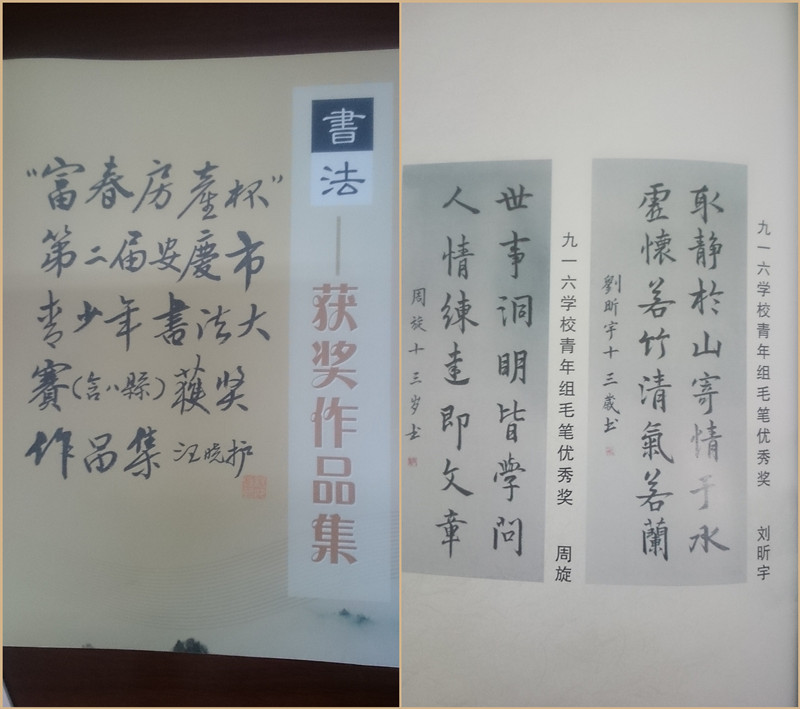 “富春房產杯”
第二届安慶市
青少年書法大
賽(含八縣)獲奖
作品集 汪晓护
書法
——获奖作品集
取静於山寄情于水
虛懷若竹清氣若蘭
劉昕宇十三歲书
九一六学校青年组毛笔优秀奖 刘昕宇
世事洞明皆学问
人情練達即文章
周旋十三岁书
九一六学校青年组毛笔优秀奖 周旋